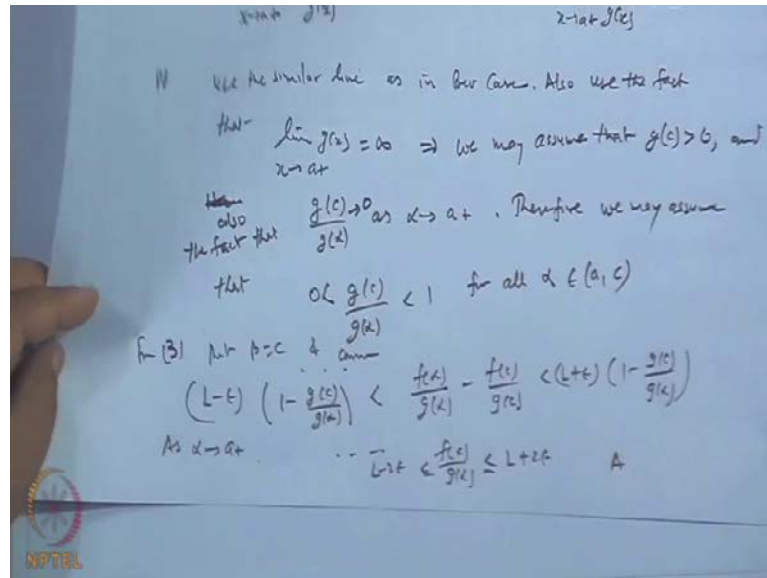 x→a+ g(x) x→a+ g(x)
use the similar line as in Case. Also use the fact
that lim g(x) = ∞ ⇒ we may assume that g(c) > 0, and
x→a+
also g(c)/g(α) → 0 as α → a+. Therefore we may assume
the fact that
that 0 < g(c)/g(α) < 1 for all α ∈ (a, c)
(3) put β = c &
(L-ε) (1 - g(c)/g(α)) < f(α)/g(α) - f(c)/g(α) < (L+ε) (1 - g(c)/g(α))
As α → a+ ... L-2ε ≤ f(c)/g(α) ≤ L+2ε A
NPTEL